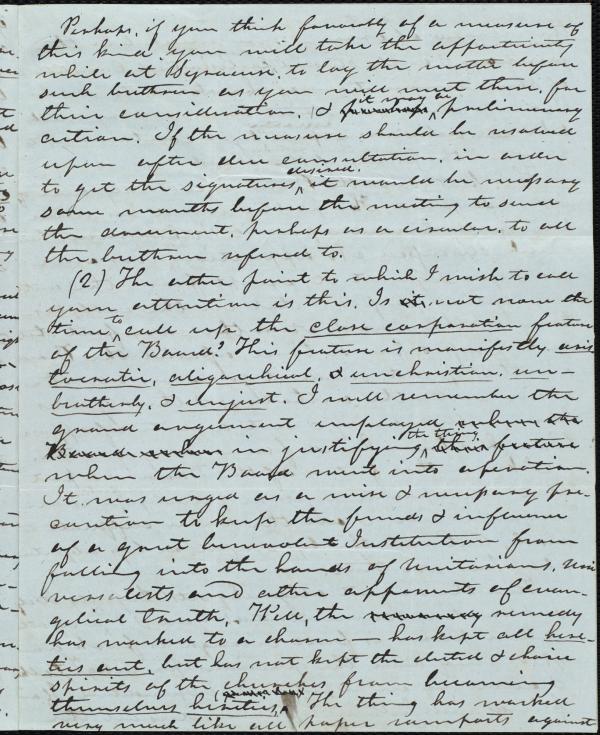 Perhaps, if you think favorably of a measure of
this kind, you will take the opportunity
while at Syracuse, to lay the matter before
such brethren as you will meet there, for
their consideration, & it may be preliminary
action. If the measure should be resolved
upon after due consultation, in order
to get the signatures desired, it would be necessary
some months before the meeting to send
the document, perhaps as a circular, to all
the brethren refered to.
(2) The other point to which I wish to call
your attention is this. Is it not now the
time to call up the close corporation feature
of the Board? This feature is manifestly aris
tocratic, oligarchical, & unchristian, un-
brotherly, & unjust. I well remember the
grand argument employed when the
Board when in justifying the thing their feature
when the Board went into operation.
It was urged as a wise & necessary pre-
caution to keep the funds & influence
of a great benevolent Institution from
falling into the hands of Unitarians, Uni
versalists and other opponents of evan-
gelical truth. Well, the remedy
has worked to a charm — has kept all here-
tics out, but has not kept the elected & choice
spirits of the churches from becoming
themselves heretics. The thing has worked
very much like all paper ramparts against